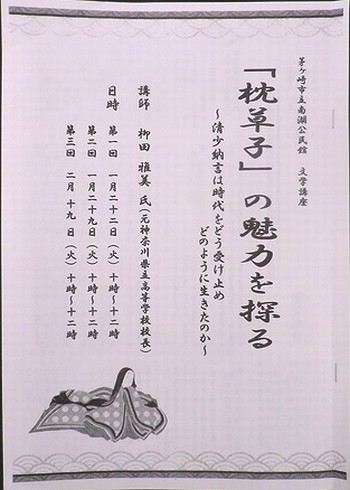 茅ヶ崎市立南湖公民館　文学講座
「枕草子」の魅力を探る
～清少納言は時代をどう受け止め
どのように生きたのか～
講師　柳田　雅美　氏（元神奈川県立高等学校校長）
日時　第一回　一月二十二日（火）十時～十二時
第二回　一月二十九日（火）十時～十二時
第三回　二月十九日（火）十時～十二時